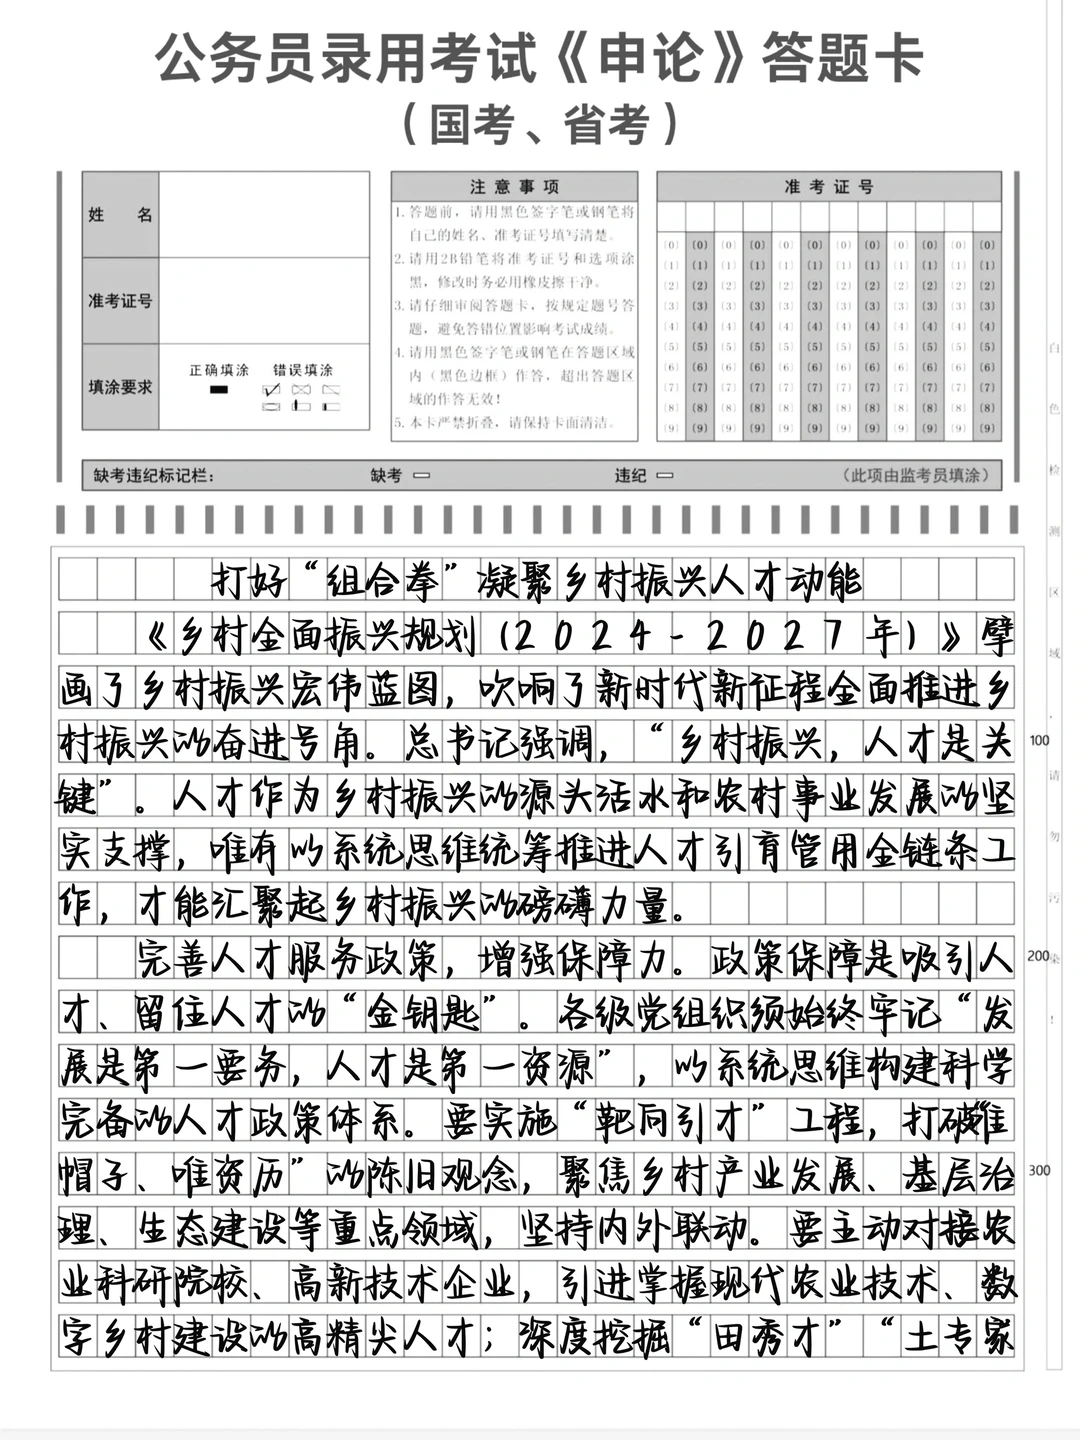 公务员录用考试《申论》答题卡
（国考、省考）
姓 名
准考证号
填涂要求
正确填涂 错误填涂
注意事项
1.答题前，请用黑色签字笔或钢笔将
自己的姓名、准考证号填写清楚。
2.请用2B铅笔将准考证号和选项涂
黑，修改时务必用橡皮擦干净。
3.请仔细审阅答题卡，按规定题号答
题，避免答错位置影响考试成绩。
4.请用黑色签字笔或钢笔在答题区域
内（黑色边框）作答，超出答题区
域的作答无效！
5.本卡严禁折叠，请保持卡面清洁。
准考证号
(0) (0) (0) (0) (0) (0) (0) (0) (0) (0) (0) (0)
(1) (1) (1) (1) (1) (1) (1) (1) (1) (1) (1) (1)
(2) (2) (2) (2) (2) (2) (2) (2) (2) (2) (2) (2)
(3) (3) (3) (3) (3) (3) (3) (3) (3) (3) (3) (3)
(4) (4) (4) (4) (4) (4) (4) (4) (4) (4) (4) (4)
(5) (5) (5) (5) (5) (5) (5) (5) (5) (5) (5) (5)
(6) (6) (6) (6) (6) (6) (6) (6) (6) (6) (6) (6)
(7) (7) (7) (7) (7) (7) (7) (7) (7) (7) (7) (7)
(8) (8) (8) (8) (8) (8) (8) (8) (8) (8) (8) (8)
(9) (9) (9) (9) (9) (9) (9) (9) (9) (9) (9) (9)
缺考违纪标记栏： 缺考 违纪 （此项由监考员填涂）
打好“组合拳”凝聚乡村振兴人才动能
《乡村全面振兴规划（2024-2027年）》擘
画了乡村振兴宏伟蓝图，吹响了新时代新征程全面推进乡
村振兴的奋进号角。总书记强调，“乡村振兴，人才是关
100
键”。人才作为乡村振兴的源头活水和农村事业发展的坚
实支撑，唯有以系统思维统筹推进人才引育管用全链条工
作，才能汇聚起乡村振兴的磅礴力量。
完善人才服务政策，增强保障力。政策保障是吸引人
200
才、留住人才的“金钥匙”。各级党组织须始终牢记“发
展是第一要务，人才是第一资源”，以系统思维构建科学
完备的人才政策体系。要实施“靶向引才”工程，打破“唯
帽子、唯资历”的陈旧观念，聚焦乡村产业发展、基层治
300
理、生态建设等重点领域，坚持内外联动。要主动对接农
业科研院校、高新技术企业，引进掌握现代农业技术、数
字乡村建设的高精尖人才；深度挖掘“田秀才”“土专家
白色检测区域，请勿污染！